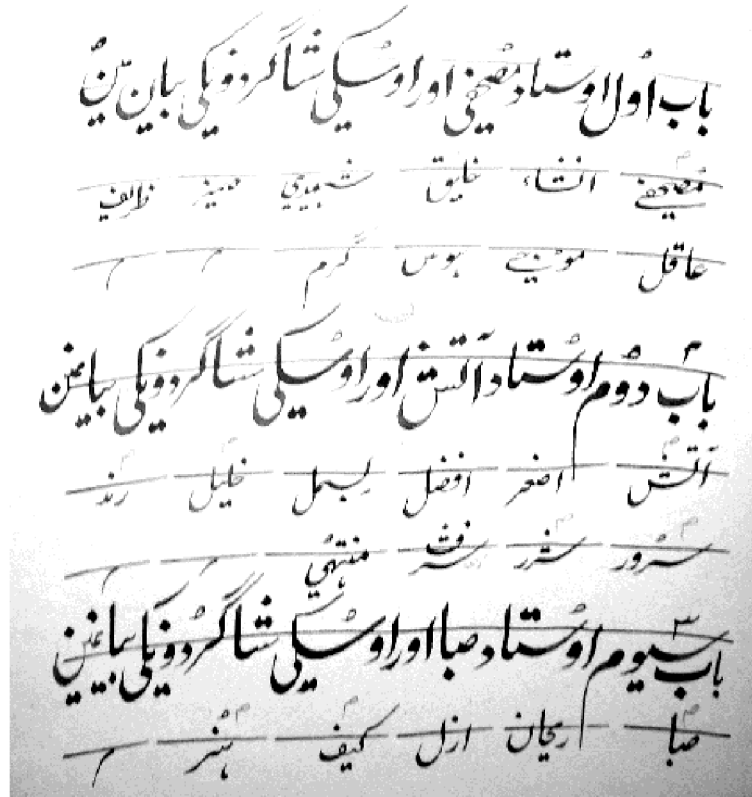 باب اول اوستاد مصحفی اور اوسکی شاگردونکی بیان مین
مصحفے انشاء خلیق شہیدی ضمیر ظریف
عاقل مونس ہوس گرم
باب دوم اوستاد آتش اور اوسکی شاگردونکی بیانمین
آتش اصغر افضل بسمل خلیل رند
سرور شرر شرف منتہی
باب سیوم اوستاد صبا اور اوسکی شاگردونکی بیانمین
صبا ریحان ازل کیف ہنر